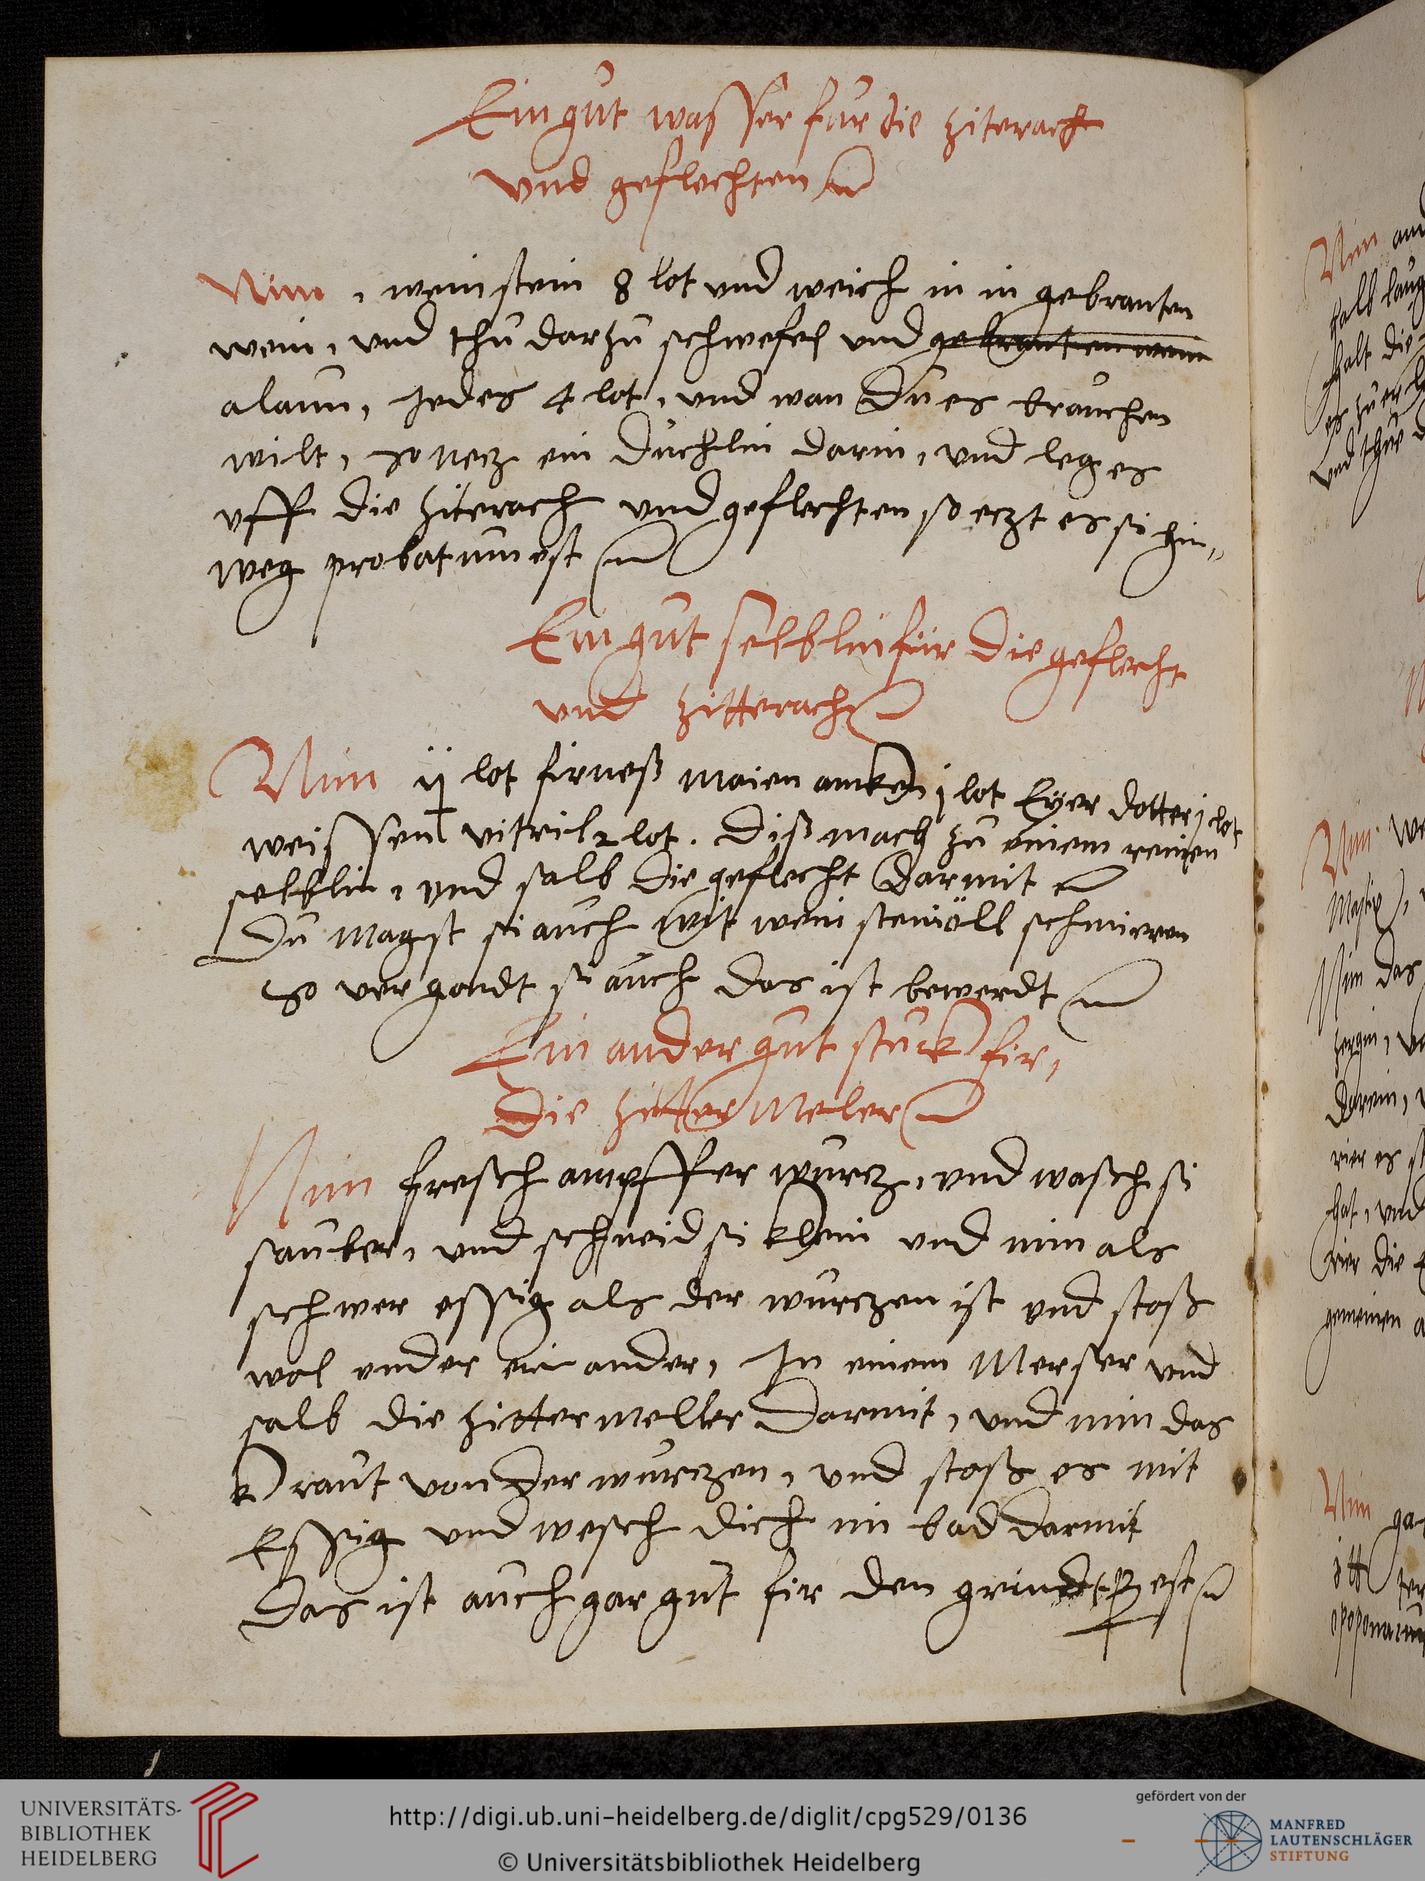 Ein gut wasser fur die ziterach
und geflechten
Nim, weinstein 8 lot und weich in in gebranten
wein, und thu darzu schwefel und gebranten wein
alaun, Jedes 4 lot, und wan du es brauchen
wilt, so necz ein duchlin darin, und leg es
uff die ziterach und geflechten so eczt es si hin„
weg probatum est
Ein gut selblin für die geflecht
und zitterach
Nim ij lot firneß maien ancken j lot Eyer dotter j lot
weissen vitril 2 lot. Diß mach zu einem reinen
selblin, und salb die geflecht darmit
Du magst si auch mit weinsteinöll schmieren
So vergondt si auch das ist bewerdt
Ein ander gut stuck fir,
die zitter Meler
Nim fresch ampffer wurcz, und wasch si
sauber, und schneid si klein und nim als
schwer essig als der wurczen ist und stoß
wol under einander, In einem Merser und
salb die zittermeller darmit, und nim das
kraut von der wurczen, und stoß es mit
Essig und wesch dich im bad darmit
Das ist auch gar gut fir den grindt est
Nim
Nim
Nim das
Nim
UNIVERSITÄTS-
BIBLIOTHEK
HEIDELBERG
http://digi.ub.uni-heidelberg.de/diglit/cpg529/0136
© Universitätsbibliothek Heidelberg
gefördert von der
MANFRED
LAUTENSCHLÄGER
STIFTUNG